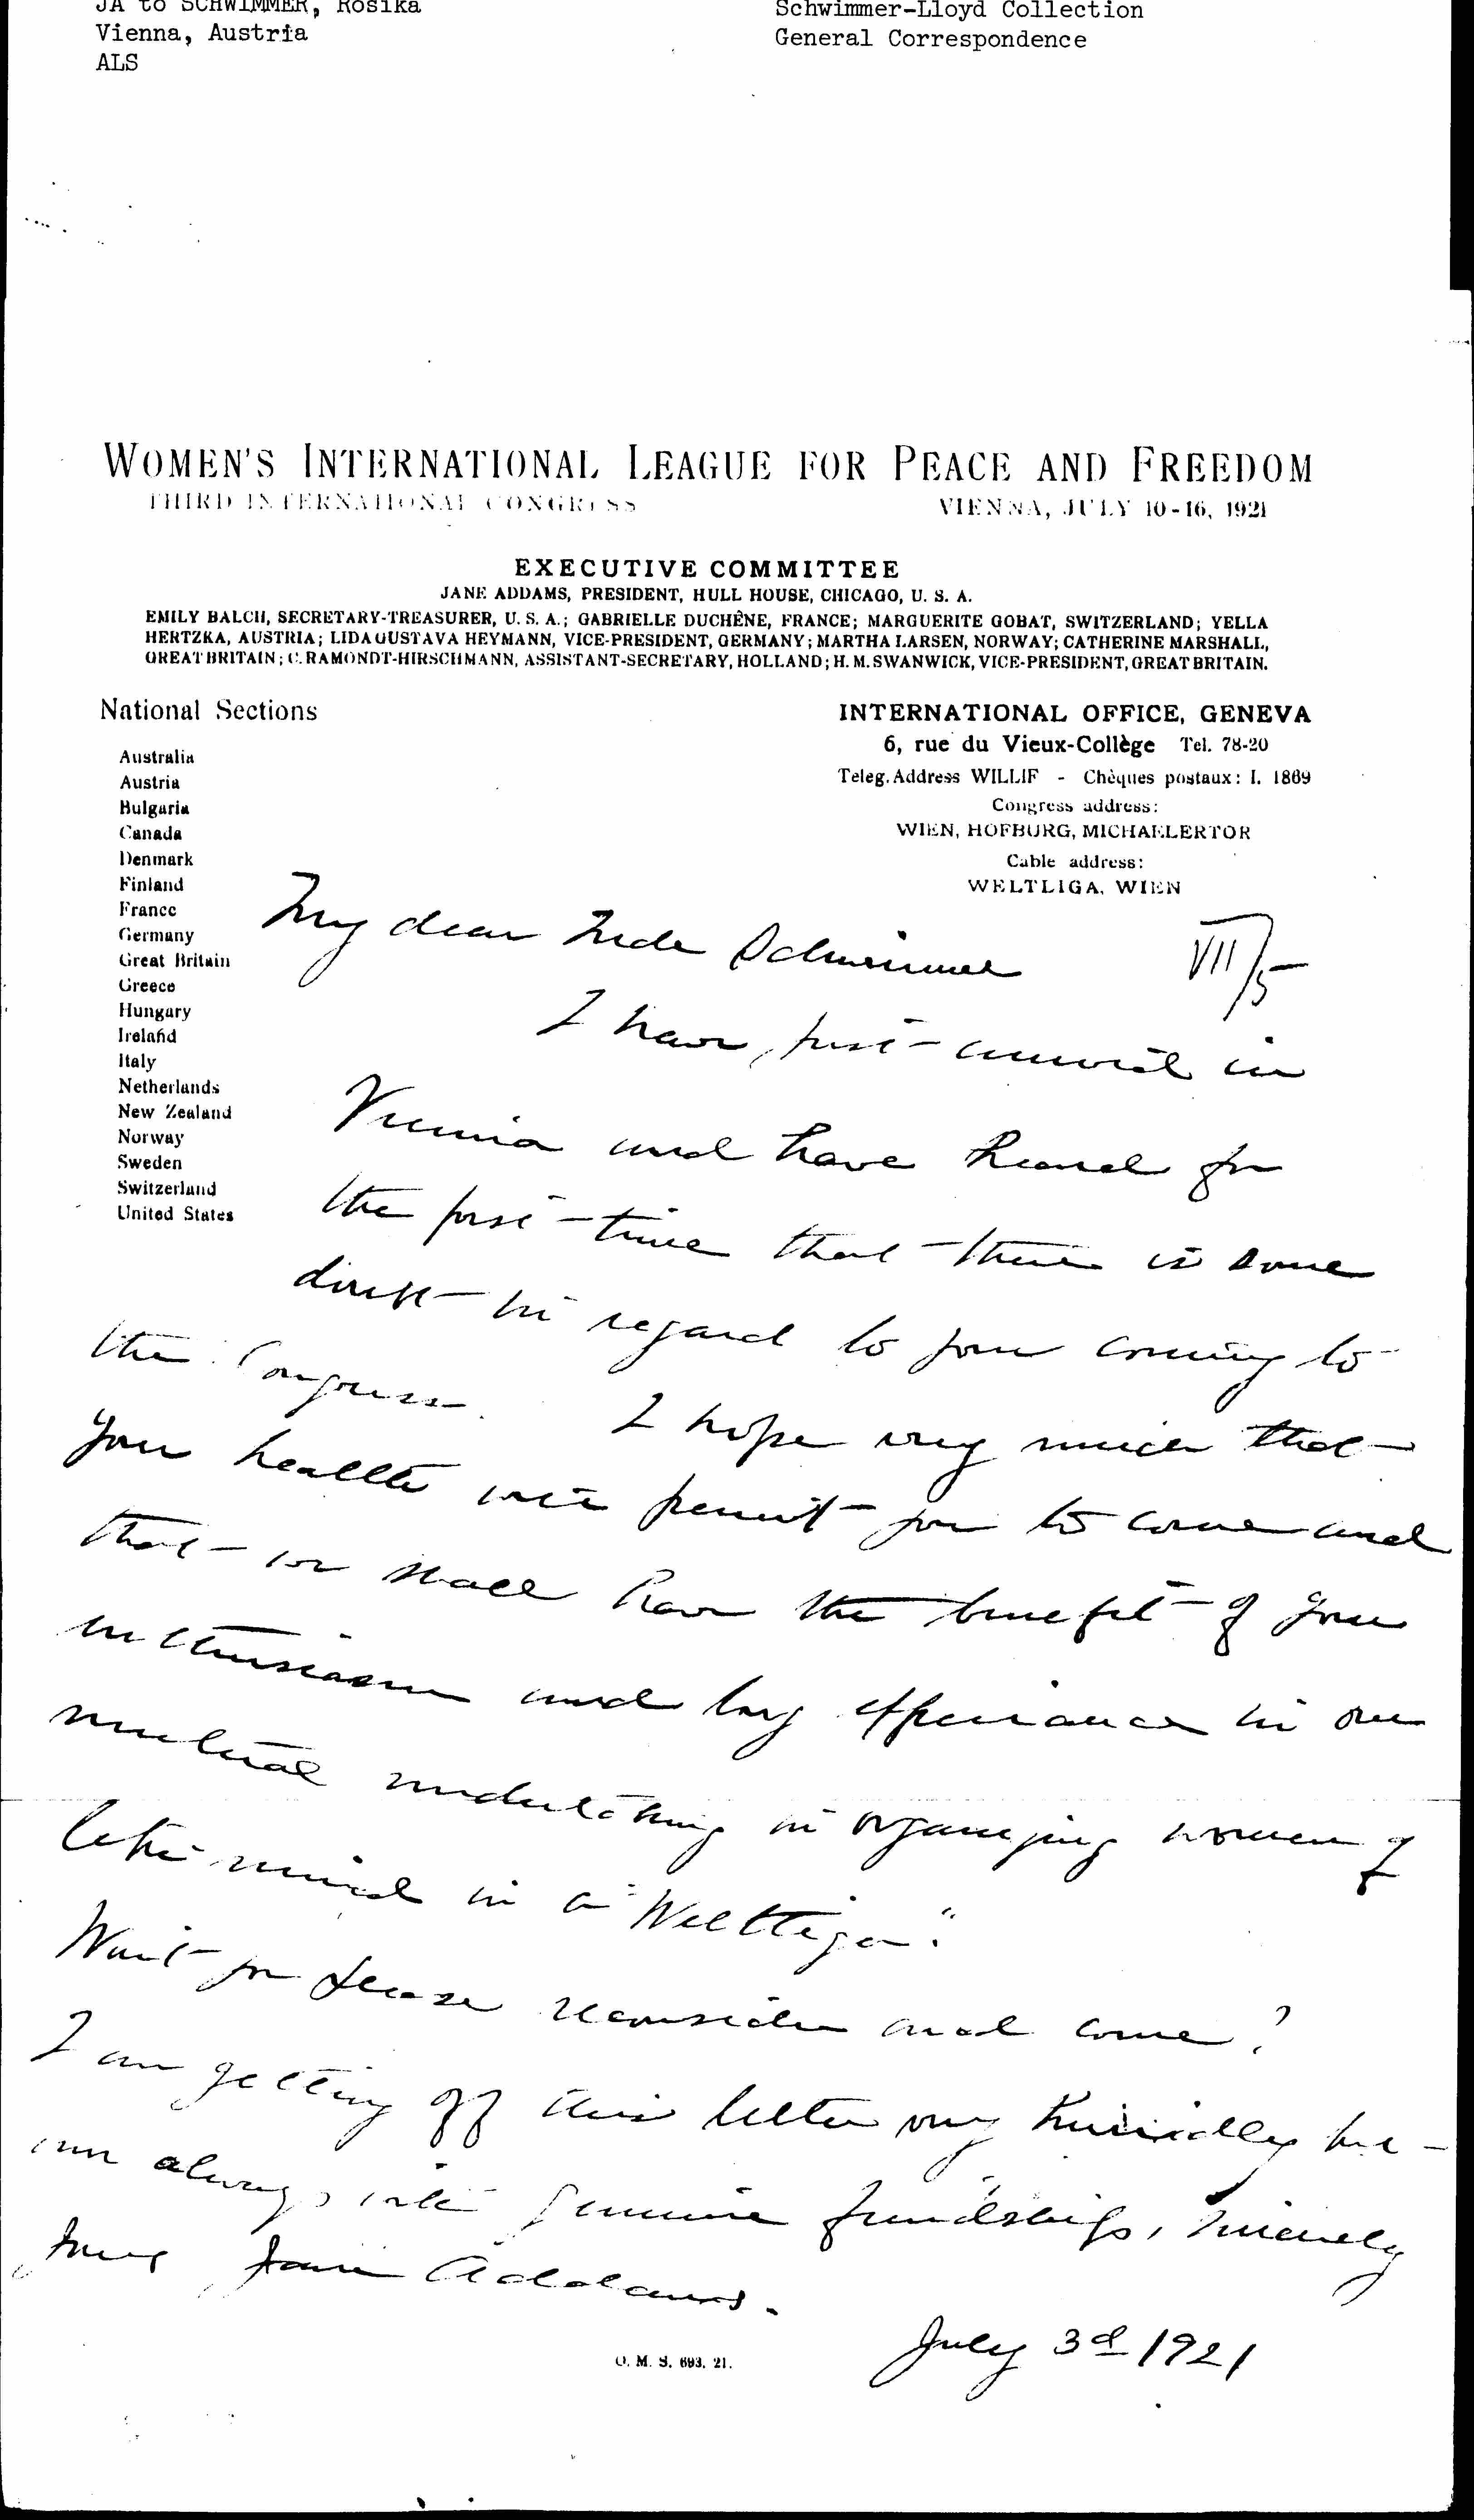 JA to SCHWIMMER, Rosika
Vienna, Austria
ALS
Schwimmer-Lloyd Collection
General Correspondence
WOMEN'S INTERNATIONAL LEAGUE FOR PEACE AND FREEDOM
THIRD INTERNATIONAL CONGRESS VIENNA, JULY 10-16, 1921
EXECUTIVE COMMITTEE
JANE ADDAMS, PRESIDENT, HULL HOUSE, CHICAGO, U. S. A.
EMILY BALCH, SECRETARY-TREASURER, U. S. A.; GABRIELLE DUCHÊNE, FRANCE; MARGUERITE GOBAT, SWITZERLAND; YELLA
HERTZKA, AUSTRIA; LIDA GUSTAVA HEYMANN, VICE-PRESIDENT, GERMANY; MARTHA LARSEN, NORWAY; CATHERINE MARSHALL,
GREAT BRITAIN; C. RAMONDT-HIRSCHMANN, ASSISTANT-SECRETARY, HOLLAND; H. M. SWANWICK, VICE-PRESIDENT, GREAT BRITAIN.
National Sections
Australia
Austria
Bulgaria
Canada
Denmark
Finland
France
Germany
Great Britain
Greece
Hungary
Ireland
Italy
Netherlands
New Zealand
Norway
Sweden
Switzerland
United States
INTERNATIONAL OFFICE, GENEVA
6, rue du Vieux-Collège Tel. 78-20
Teleg. Address WILLIF - Chèques postaux: I. 1869
Congress address:
WIEN, HOFBURG, MICHAELERTOR
Cable address:
WELTLIGA, WIEN
My dear Schwimmer VII/5
I have just arrived in
Vienna and have heard for
the first time that there is some
doubt in regard to your coming to
the Congress. I hope very much that
your health will permit you to come and
that we shall have the benefit of your
enthusiasm and long experience in our
mutual undertaking in organizing women of
like mind in a "Weltliga".
Won't you please reconsider and come?
I am getting off this letter very hurriedly but
am always with genuine friendship, sincerely
yours Jane Addams.
July 3d 1921
O. M. S. 693. 21.